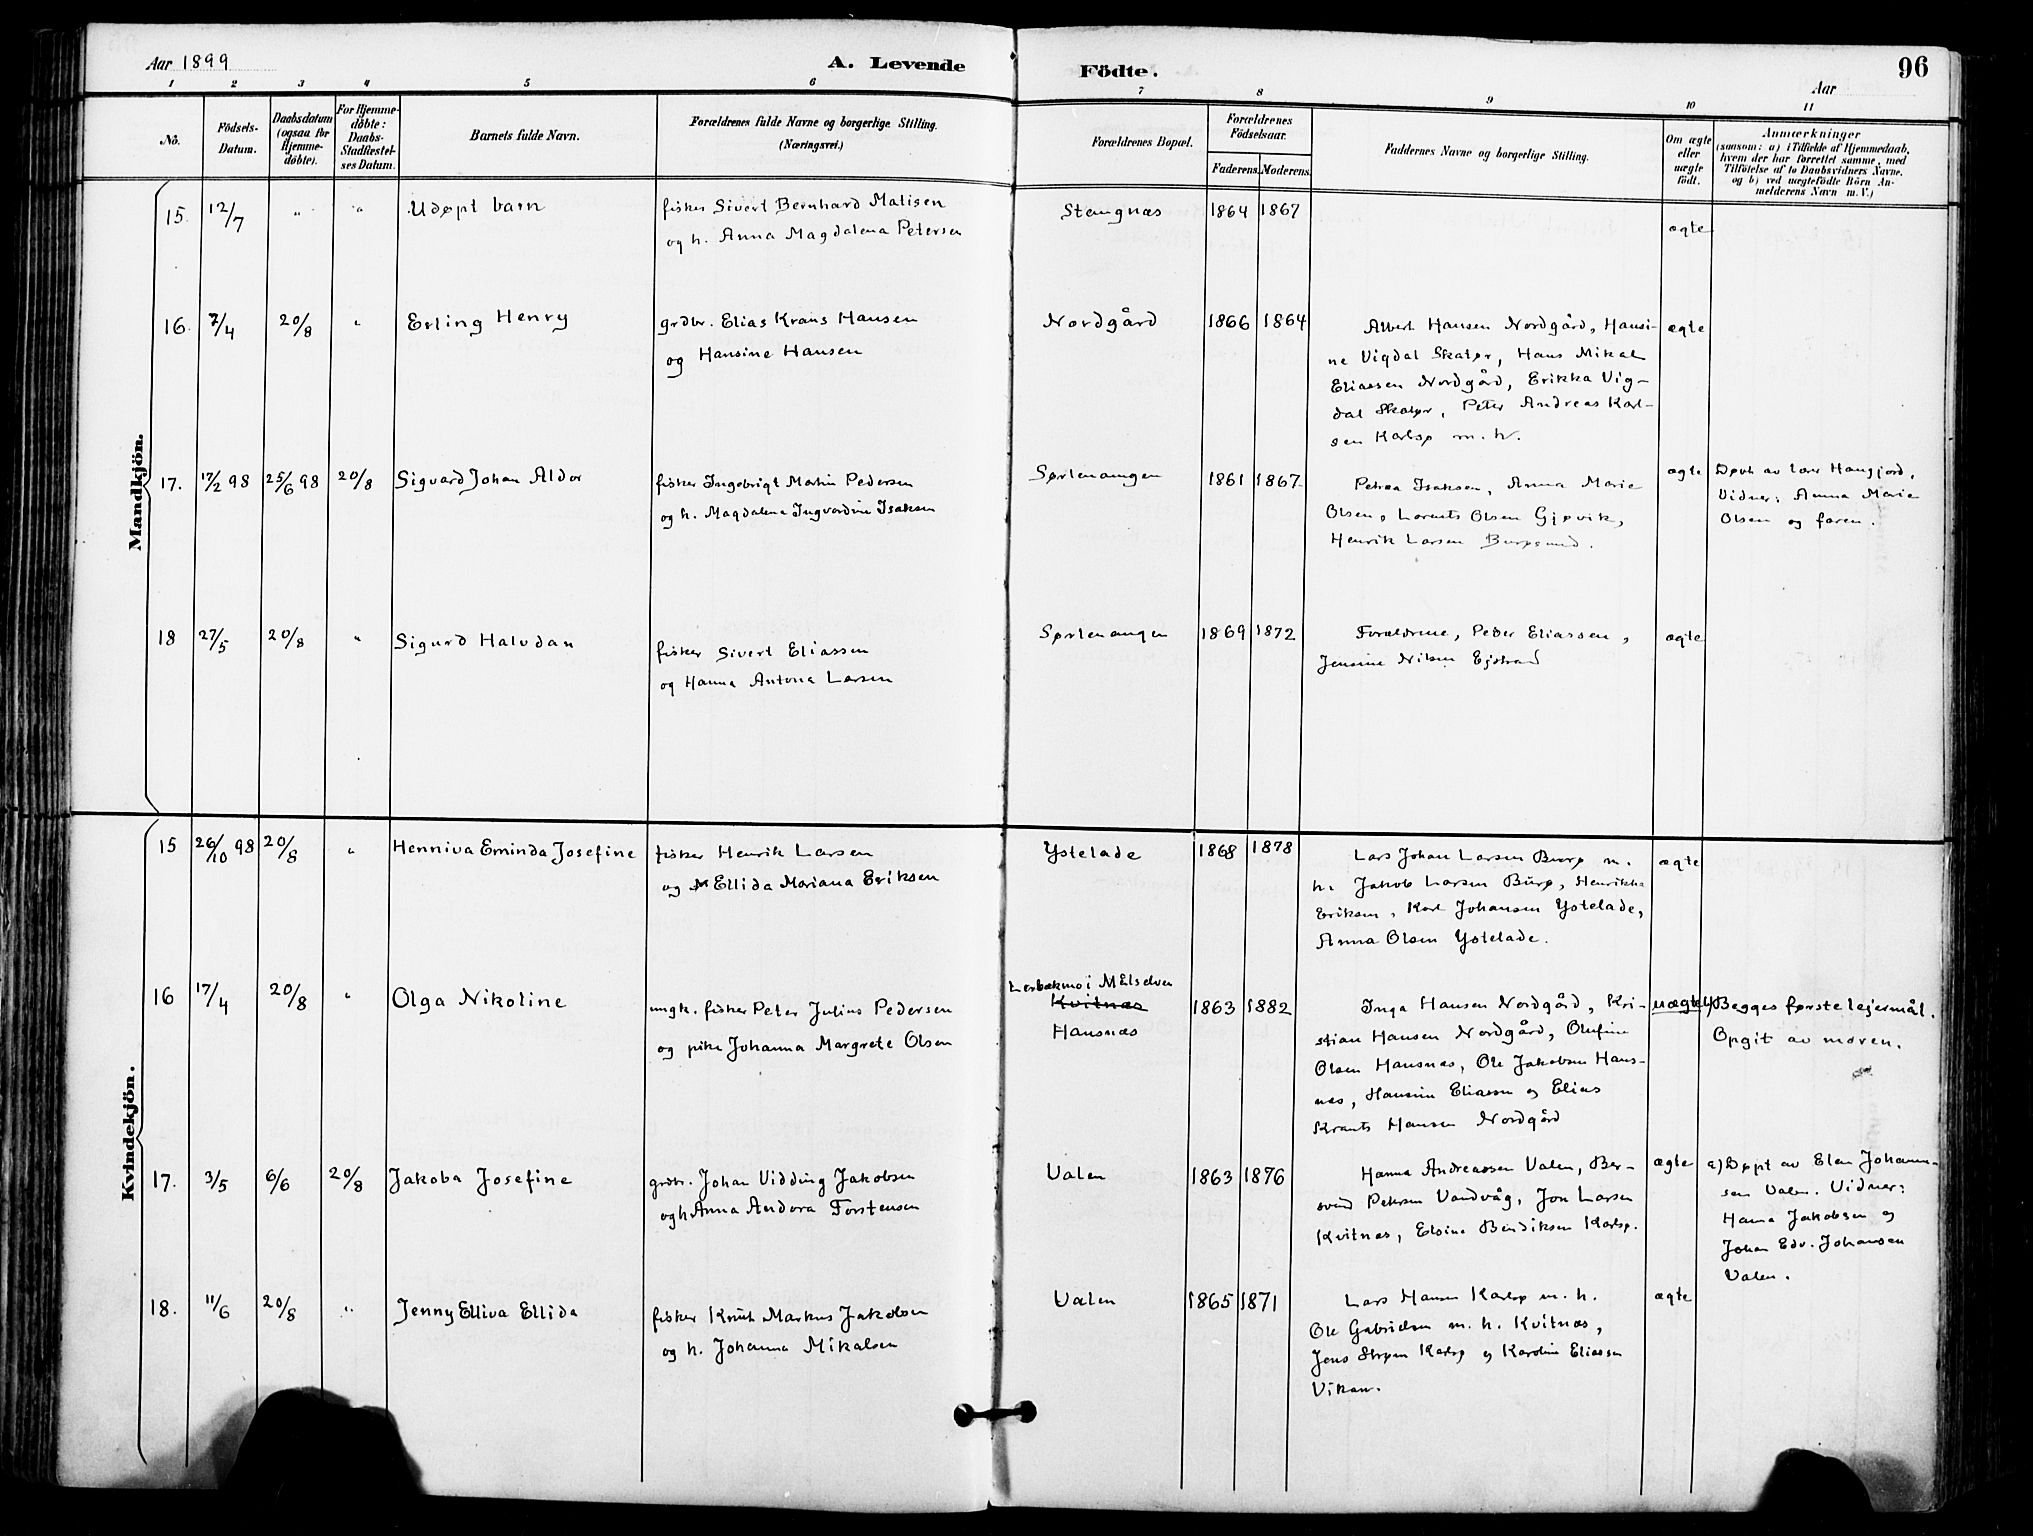 Aar 1899
A. Levende
Födte.
96
Aar
1 2 3 4 5 6 7 8 9 10 11
No.
Födsels-
Datum.
Daabsdatum
(ogsaa for
Hjemme-
døbte).
For Hjemme-
døbte:
Daabs-
Stadfæstel-
ses Datum.
Barnets fulde Navn.
Forældrenes fulde Navne og borgerlige Stilling.
(Næringsvei.)
Forældrenes Bopæl.
Forældrenes
Födselsaar.
Faderens. Moderens.
Faddernes Navne og borgerlige Stilling.
Om ægte
eller
uægte
født.
Anmærkninger
(saasom: a) i Tilfælde af Hjemmedaab,
hvem der har forrettet samme, med
Tilföielse af to Daabsvidners Navne,
og b) ved uægtefödte Börn An-
melderens Navn m. V.)
Mandkjön.
15. 12/7 " " Udøpt barn
fisker Sivert Bernhard Matisen
og h. Anna Magdalena Petersen
Stengnæs 1864 1867
ægte
16. 7/4 20/8 " Erling Henry
grdbr. Elias Krans Hansen
og Hansine Hansen
Nordgård 1866 1864
Albert Hansen Nordgård, Hansi-
ne Vigdal Skatør, Hans Mikal
Eliassen Nordgård, Erikka Vig-
dal Skatør, Peter Andreas Karl-
sen Karlsø m. h.
ægte
17. 17/2 98 25/6 98 20/8 Sigvard Johan Aldor
fisker Ingebrigt Martin Pedersen
og h. Magdalena Ingvardine Isaksen
Sørlenangen 1861 1867
Petrea Isaksen, Anna Marie
Olsen, Lorents Olsen Gjøvik,
Henrik Larsen Burøsund.
ægte
Døpt av lærer Haugjord,
Vidner: Anna Marie
Olsen og faren.
18 27/5 20/8 " Sigurd Halvdan
fisker Sivert Eliassen
og Hanna Antona Larsen
Sørlenangen 1869 1872
Forældrene, Peder Eliassen,
Jensine Nilsen Ejstrand
ægte
Kvindekjön.
15 26/10 98 20/8 " Henniva Eminda Josefine
fisker Henrik Larsen
og Ellida Mariana Eriksen
Ystelade 1868 1878
Lars Johan Larsen Burø m.
h. Jakob Larsen Burø, Henrikka
Eriksen, Karl Johansen Ystelade,
Anna Olsen Ystelade.
ægte
16 17/4 20/8 " Olga Nikoline
ungk. fisker Peter Julius Pedersen
og pike Johanna Margrete Olsen
Lerbækmo i Målselven
Kvitnæs
Hansnæs
1863 1882
Inga Hansen Nordgård, Kri-
stian Hansen Nordgård, Olufine
Olsen Hansnæs, Ole Jakobsen Hans-
næs, Hansine Eliassen og Elias
Krants Hansen Nordgård
uægte
b) Begges første lejermål.
Opgit av moren.
17. 3/5 6/6 20/8 Jakoba Josefine
grdbr. Johan Vidding Jakobsen
og h Anna Andora Torstensen
Valen 1863 1876
Hanna Andreassen Valen, Ber-
svend Petersen Vandvåg, Jon Larsen
Kvitnæs, Elsine Bendiksen Karlsø.
ægte
a) Døpt av Elen Johann-
sen Valen. Vidner:
Hanna Jakobsen og
Johan Edv. Johansen
Valen.
18. 11/6 20/8 " Jenny Elliva Ellida
fisker Knut Markus Jakobsen
og h. Johanna Mikalsen
Valen 1865 1871
Lars Hansen Karlsø m. h.
Ole Gabrielsen m. h. Kvitnæs,
Jens Strøm Karlsø og Karoline Eliassen
Vikan.
ægte